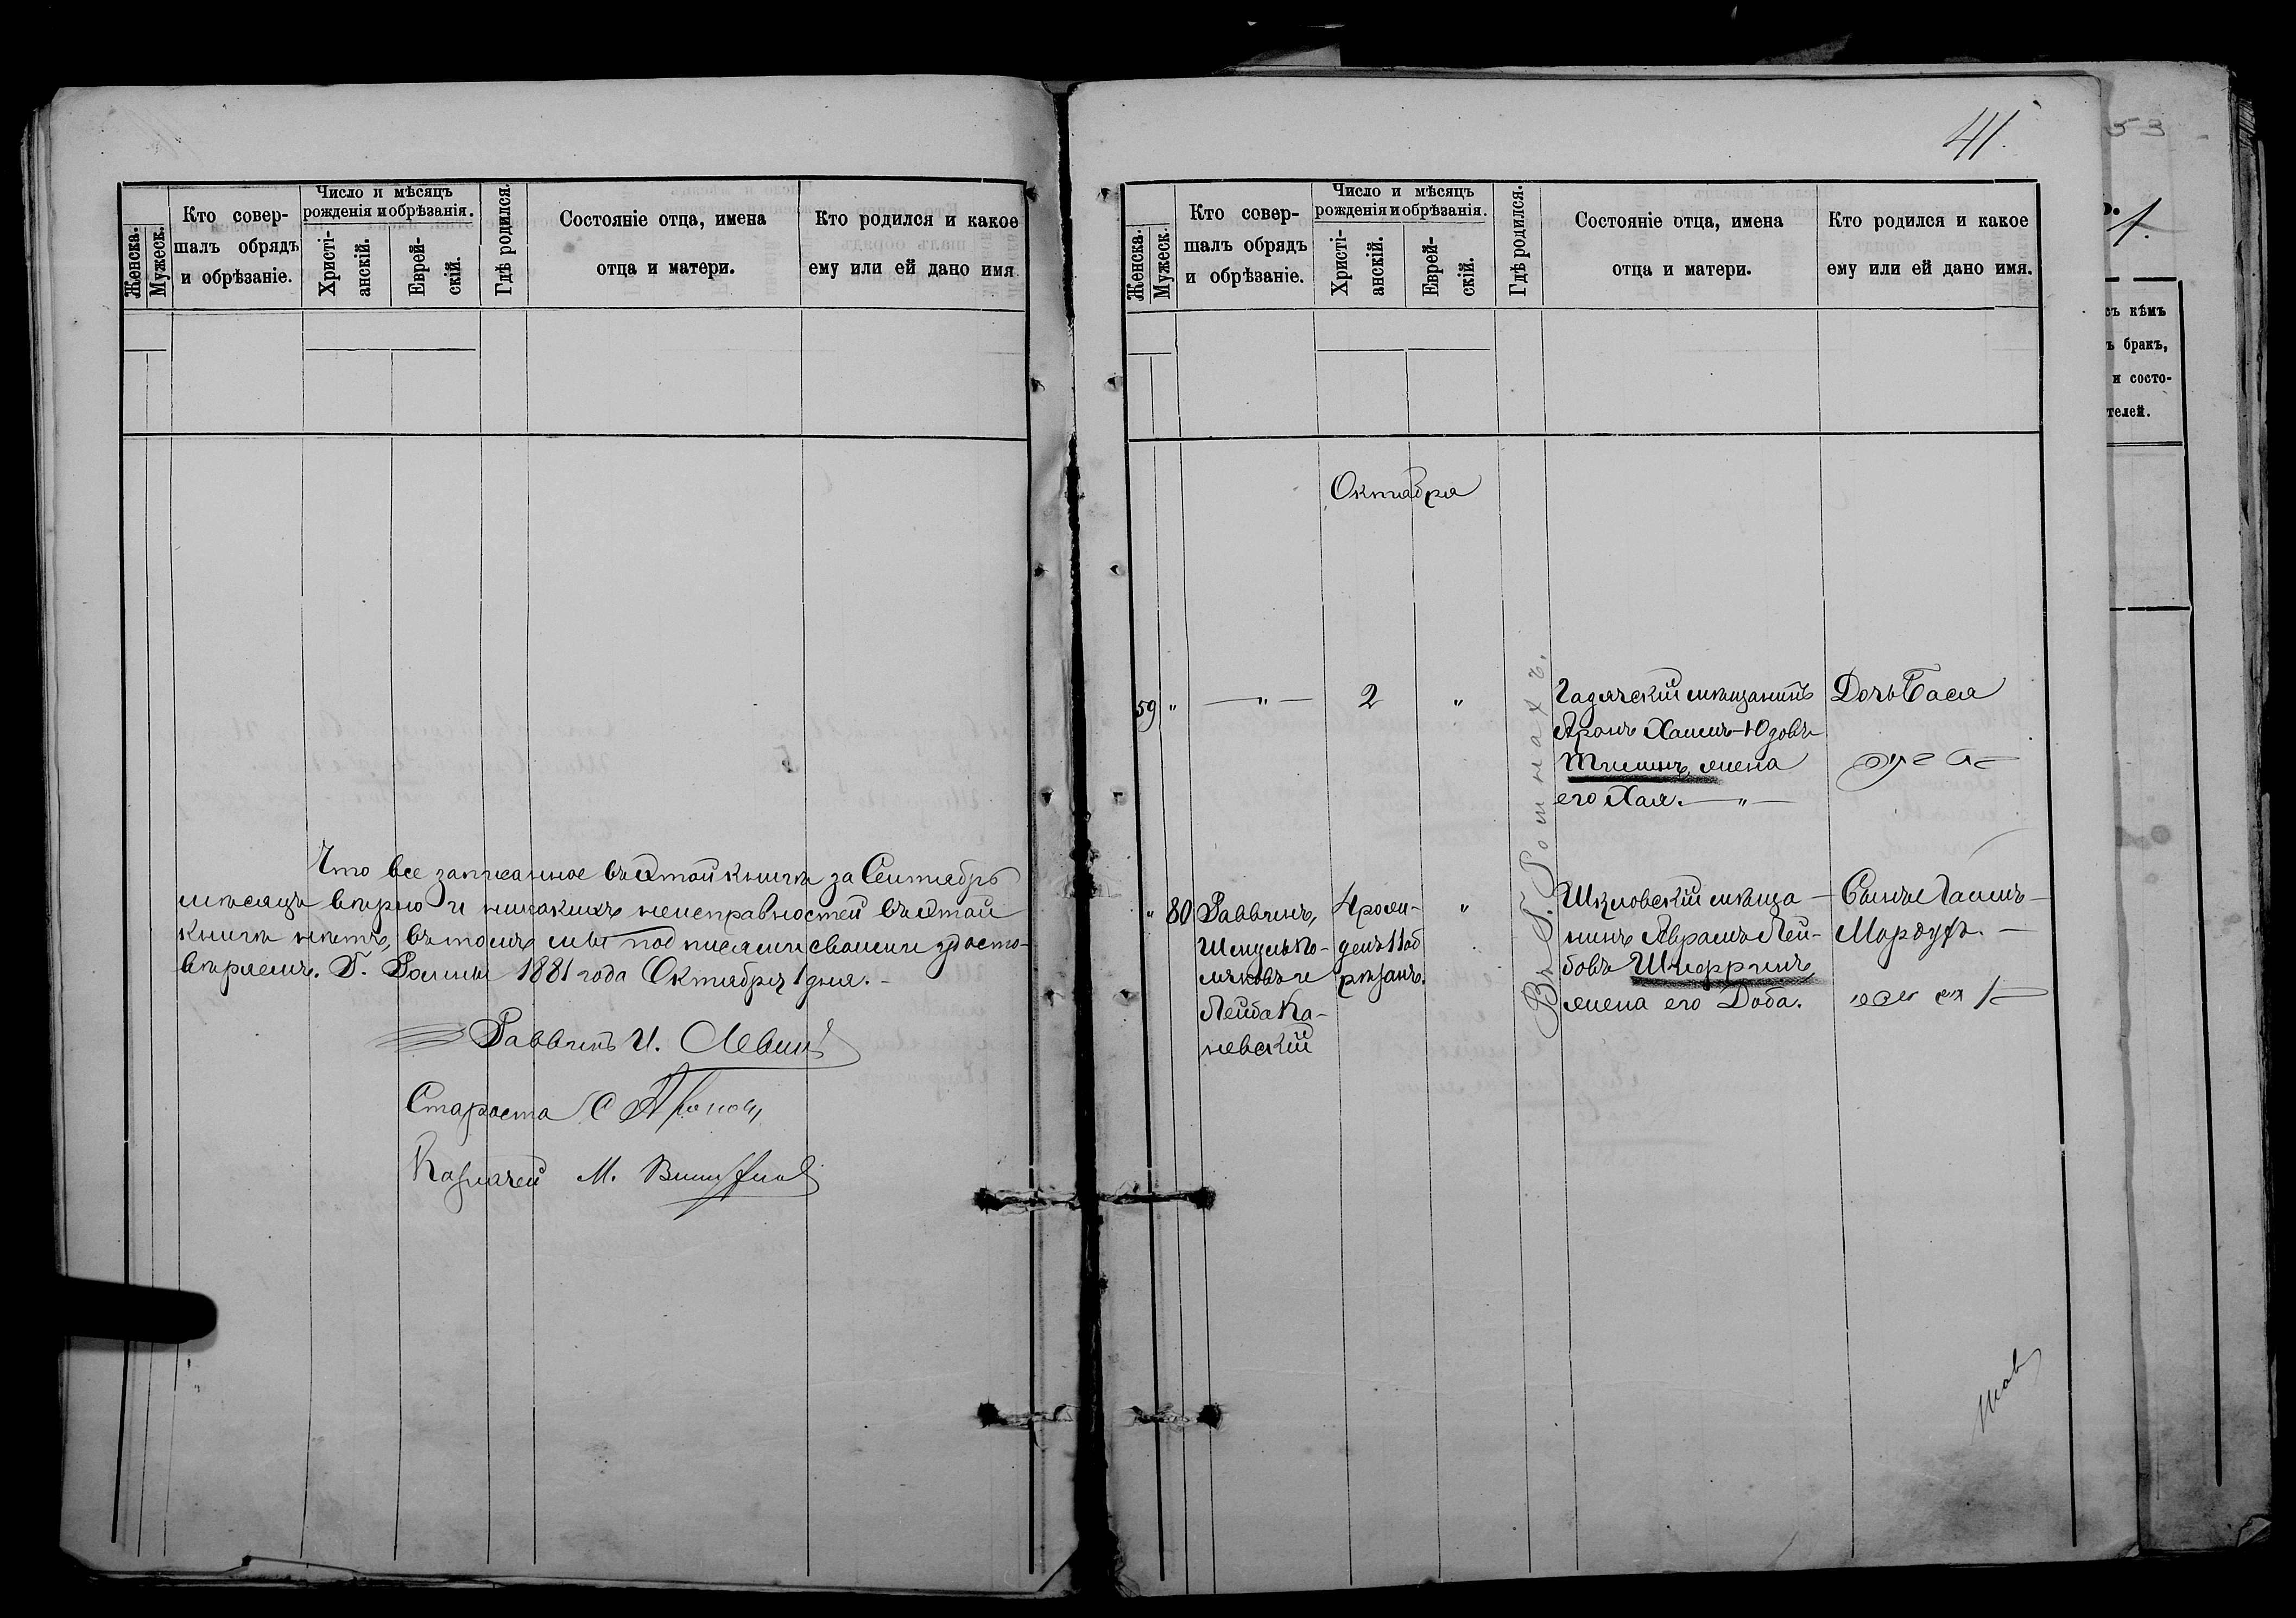 Женска.
Мужеск.
Кто совер-
шалъ обрядъ
и обрѣзаніе.
Число и мѣсяцъ
рожденія и обрѣзанія.
Христі-
анскій.
Еврей-
скій.
Гдѣ родился.
Состояніе отца, имена
отца и матери.
Кто родился и какое
ему или ей дано имя
Что все записанное въ этой книги за Сентябрь
мѣсяцъ вѣрно и никакихъ неисправностей въ этой
книги нѣтъ, въ томъ мы подписями своими удосто-
вѣряемъ. Г. Ромны 1881 года Октября 1 дня. -
Раввинъ И. Левинъ
Староста С
Казначей М.
41.
Женска.
Мужеск.
Кто совер-
шалъ обрядъ
и обрѣзаніе.
Число и мѣсяцъ
рожденія и обрѣзанія.
Христі-
анскій.
Еврей-
скій.
Гдѣ родился.
Состояніе отца, имена
отца и матери.
Кто родился и какое
ему или ей дано имя.
Октября
59 " — " — 2 "
Гадячскій мѣщанинъ
Аронъ Хаимъ-Юдовъ
жена
его Хая. — " —
Дочь Бася
Въ Г. Ромнахъ.
" 80
Раввинъ,
Лейба Ка-
невскій
4 рожд-
денъ 11 об
рѣзанъ.
"
Шкловскій мѣща-
нинъ Абрамъ Лей-
бовъ Шифринъ,
жена его Доба.
Сынъ Хаимъ-
Мордухъ. —
53
съ кѣмъ
ъ бракъ,
и состо-
телей.